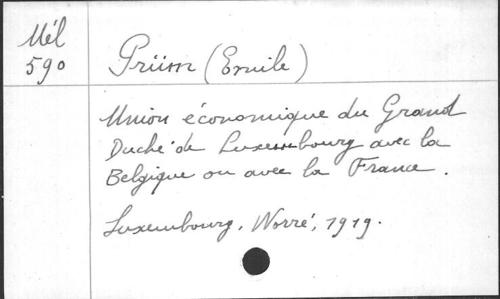 Mél
590
Prüm (Emile)
Union économique du Grand
Duché de Luxembourg avec la
Belgique ou avec la France.
Luxembourg, Worré, 1919.